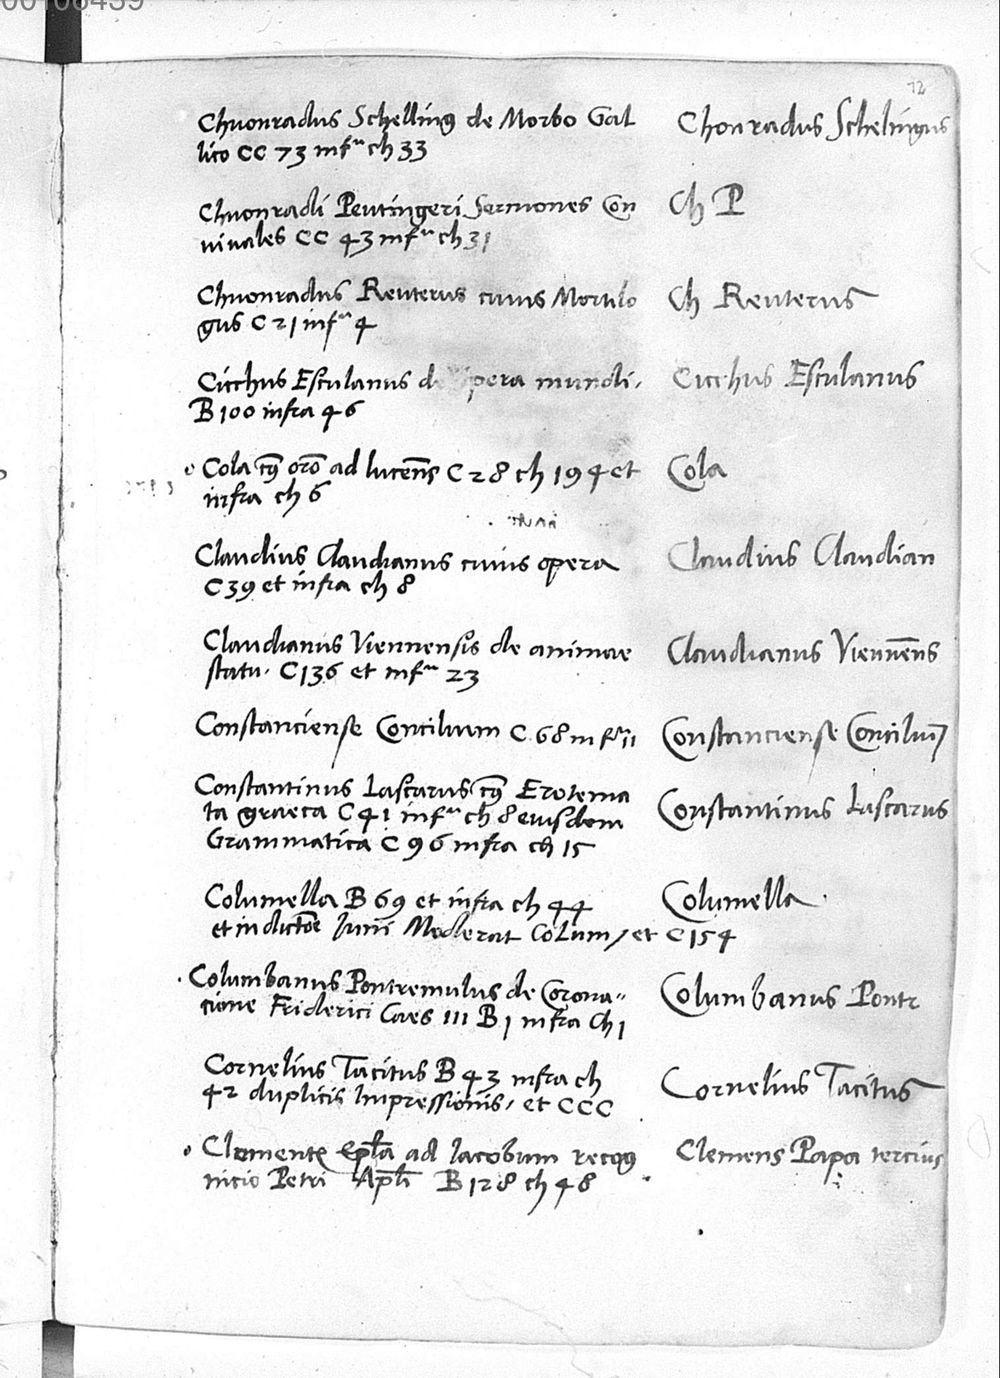 72
Chuonradus Schelling de Morbo Gal
lico CC 73 infra ch 33
Chonradus Schelingus
Chuonradi Peutingeri Sermones Con
vivales CC 43 infra ch 31
Ch P
Chuonradus Reuterus cuius Mortilo
gus C 21 infra 4
Ch Reuterus
Cicchus Esculanus de spera mundi.
B 100 infra 46
Cicchus Esculanus
Cola cuius oro ad lucens C 28 ch 194 et
infra ch 6
Cola
Claudius Claudianus cuius opera
C 39 et infra ch 8
Claudius Claudian
Claudianus Viennensis de animae
statu. C 136 et infra 23
Claudianus Viennens
Constanciense Concilium C 68 infra 11
Constanciense Concilium
Constantinus Lascarus cuius Erotema
ta graeca C 41 infra ch 8 eiusdem
Grammatica C 96 infra ch 15
Constantinus Lascarus
Columella B 69 et infra ch 44
et in dictone Iunii Moderat Colum, et C 154
Columella
Columbanus Pontremulus de Corona-
cione Friderici Caes III B 1 infra Ch 1
Columbanus Pontr
Cornelius Tacitus B 43 infra ch
42 duplicis Impressionis, et CCC
Cornelius Tacitus
Clementis Epla ad Iacobum recog
nicio Petri Apli B 128 ch 48
Clemens Papa tercius